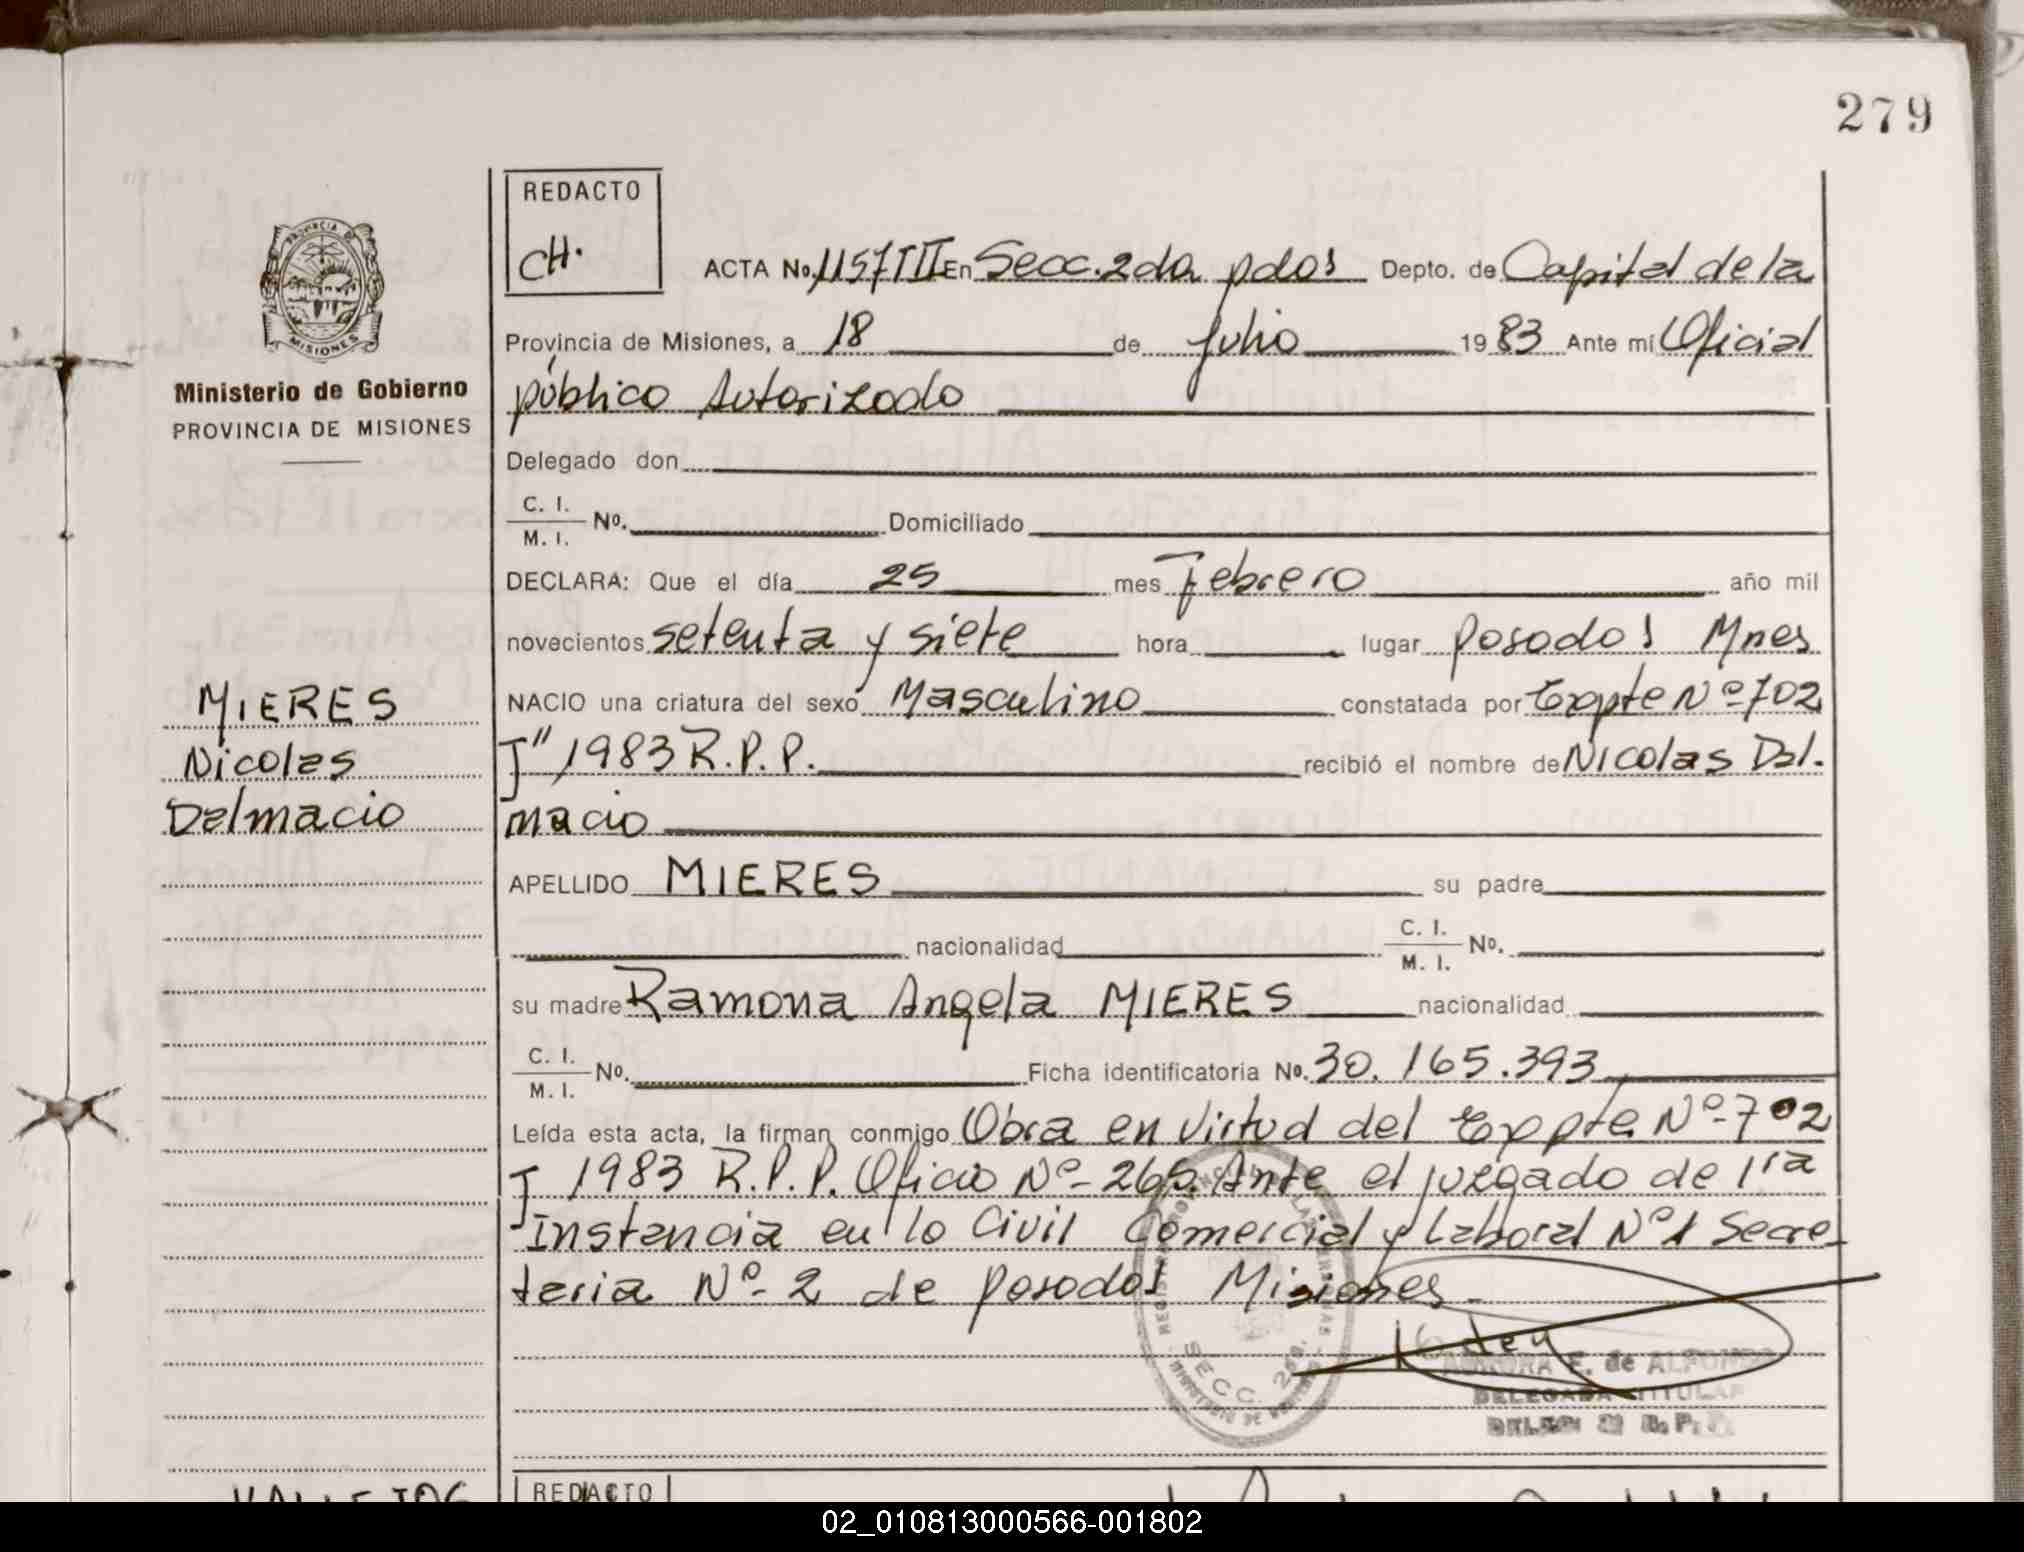 279
REDACTO
CH.
ACTA No. 1157 III En Secc. 2da pdas Depto. de Capital de la
Provincia de Misiones, a 18 de Julio 1983 Ante mí Oficial
PROVINCIA DE
MISIONES
Ministerio de Gobierno
PROVINCIA DE MISIONES
público Autorizado
Delegado don
C. I.
M. I. No. Domiciliado
DECLARA: Que el día 25 mes Febrero año mil
novecientos setenta y siete hora lugar posadas Mnes
NACIO una criatura del sexo Masculino constatada por Expte Nº 702
J" 1983 R.P.P. recibió el nombre de Nicolas Dal.
macio
MIERES
Nicolas
Dalmacio
APELLIDO MIERES su padre
nacionalidad C. I.
M. I. No.
su madre Ramona Angela MIERES nacionalidad
C. I.
M. I. No. Ficha identificatoria No. 30.165.393
Leída esta acta, la firman conmigo Obra en virtud del Expte Nº-702
J 1983 R.P.P. Oficio Nº- 265. Ante el juzgado de 1ra
Instancia en lo Civil Comercial y Laboral Nº1 Secre
taria Nº- 2 de posadas Misiones
SECC. 2da.
E. de ALFONSO
DELEGADA TITULAR
REDACTO
02_010813000566-001802